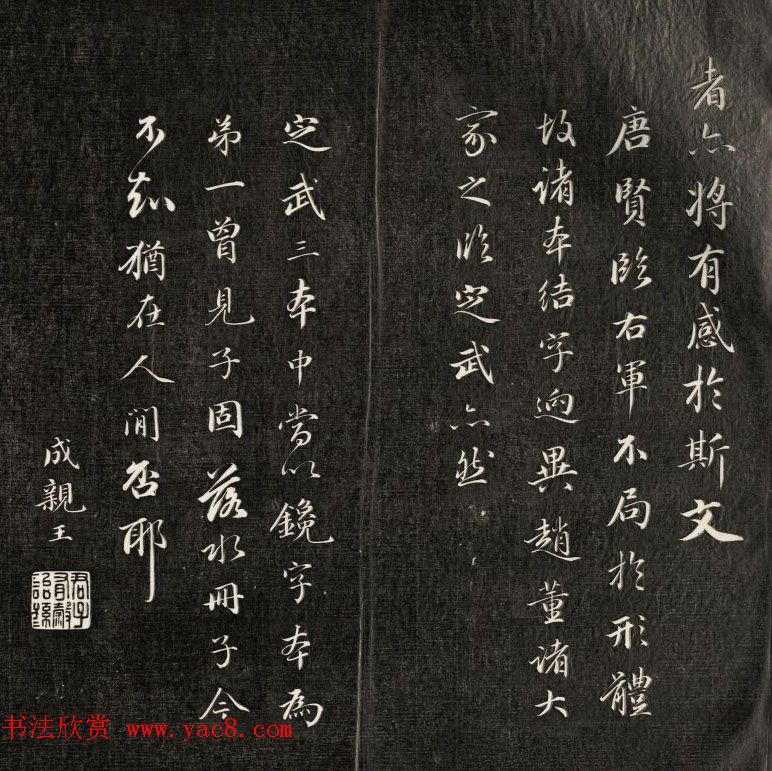 者亦將有感於斯文
唐賢臨右軍不局於形體
故諸本結字逈異趙董諸大
家之臨定武亦然
定武三本中當以鑱字本為
弟一曾見子固落水冊子今
不知猶在人間否耶
成親王
书法欣赏 www.yac8.com